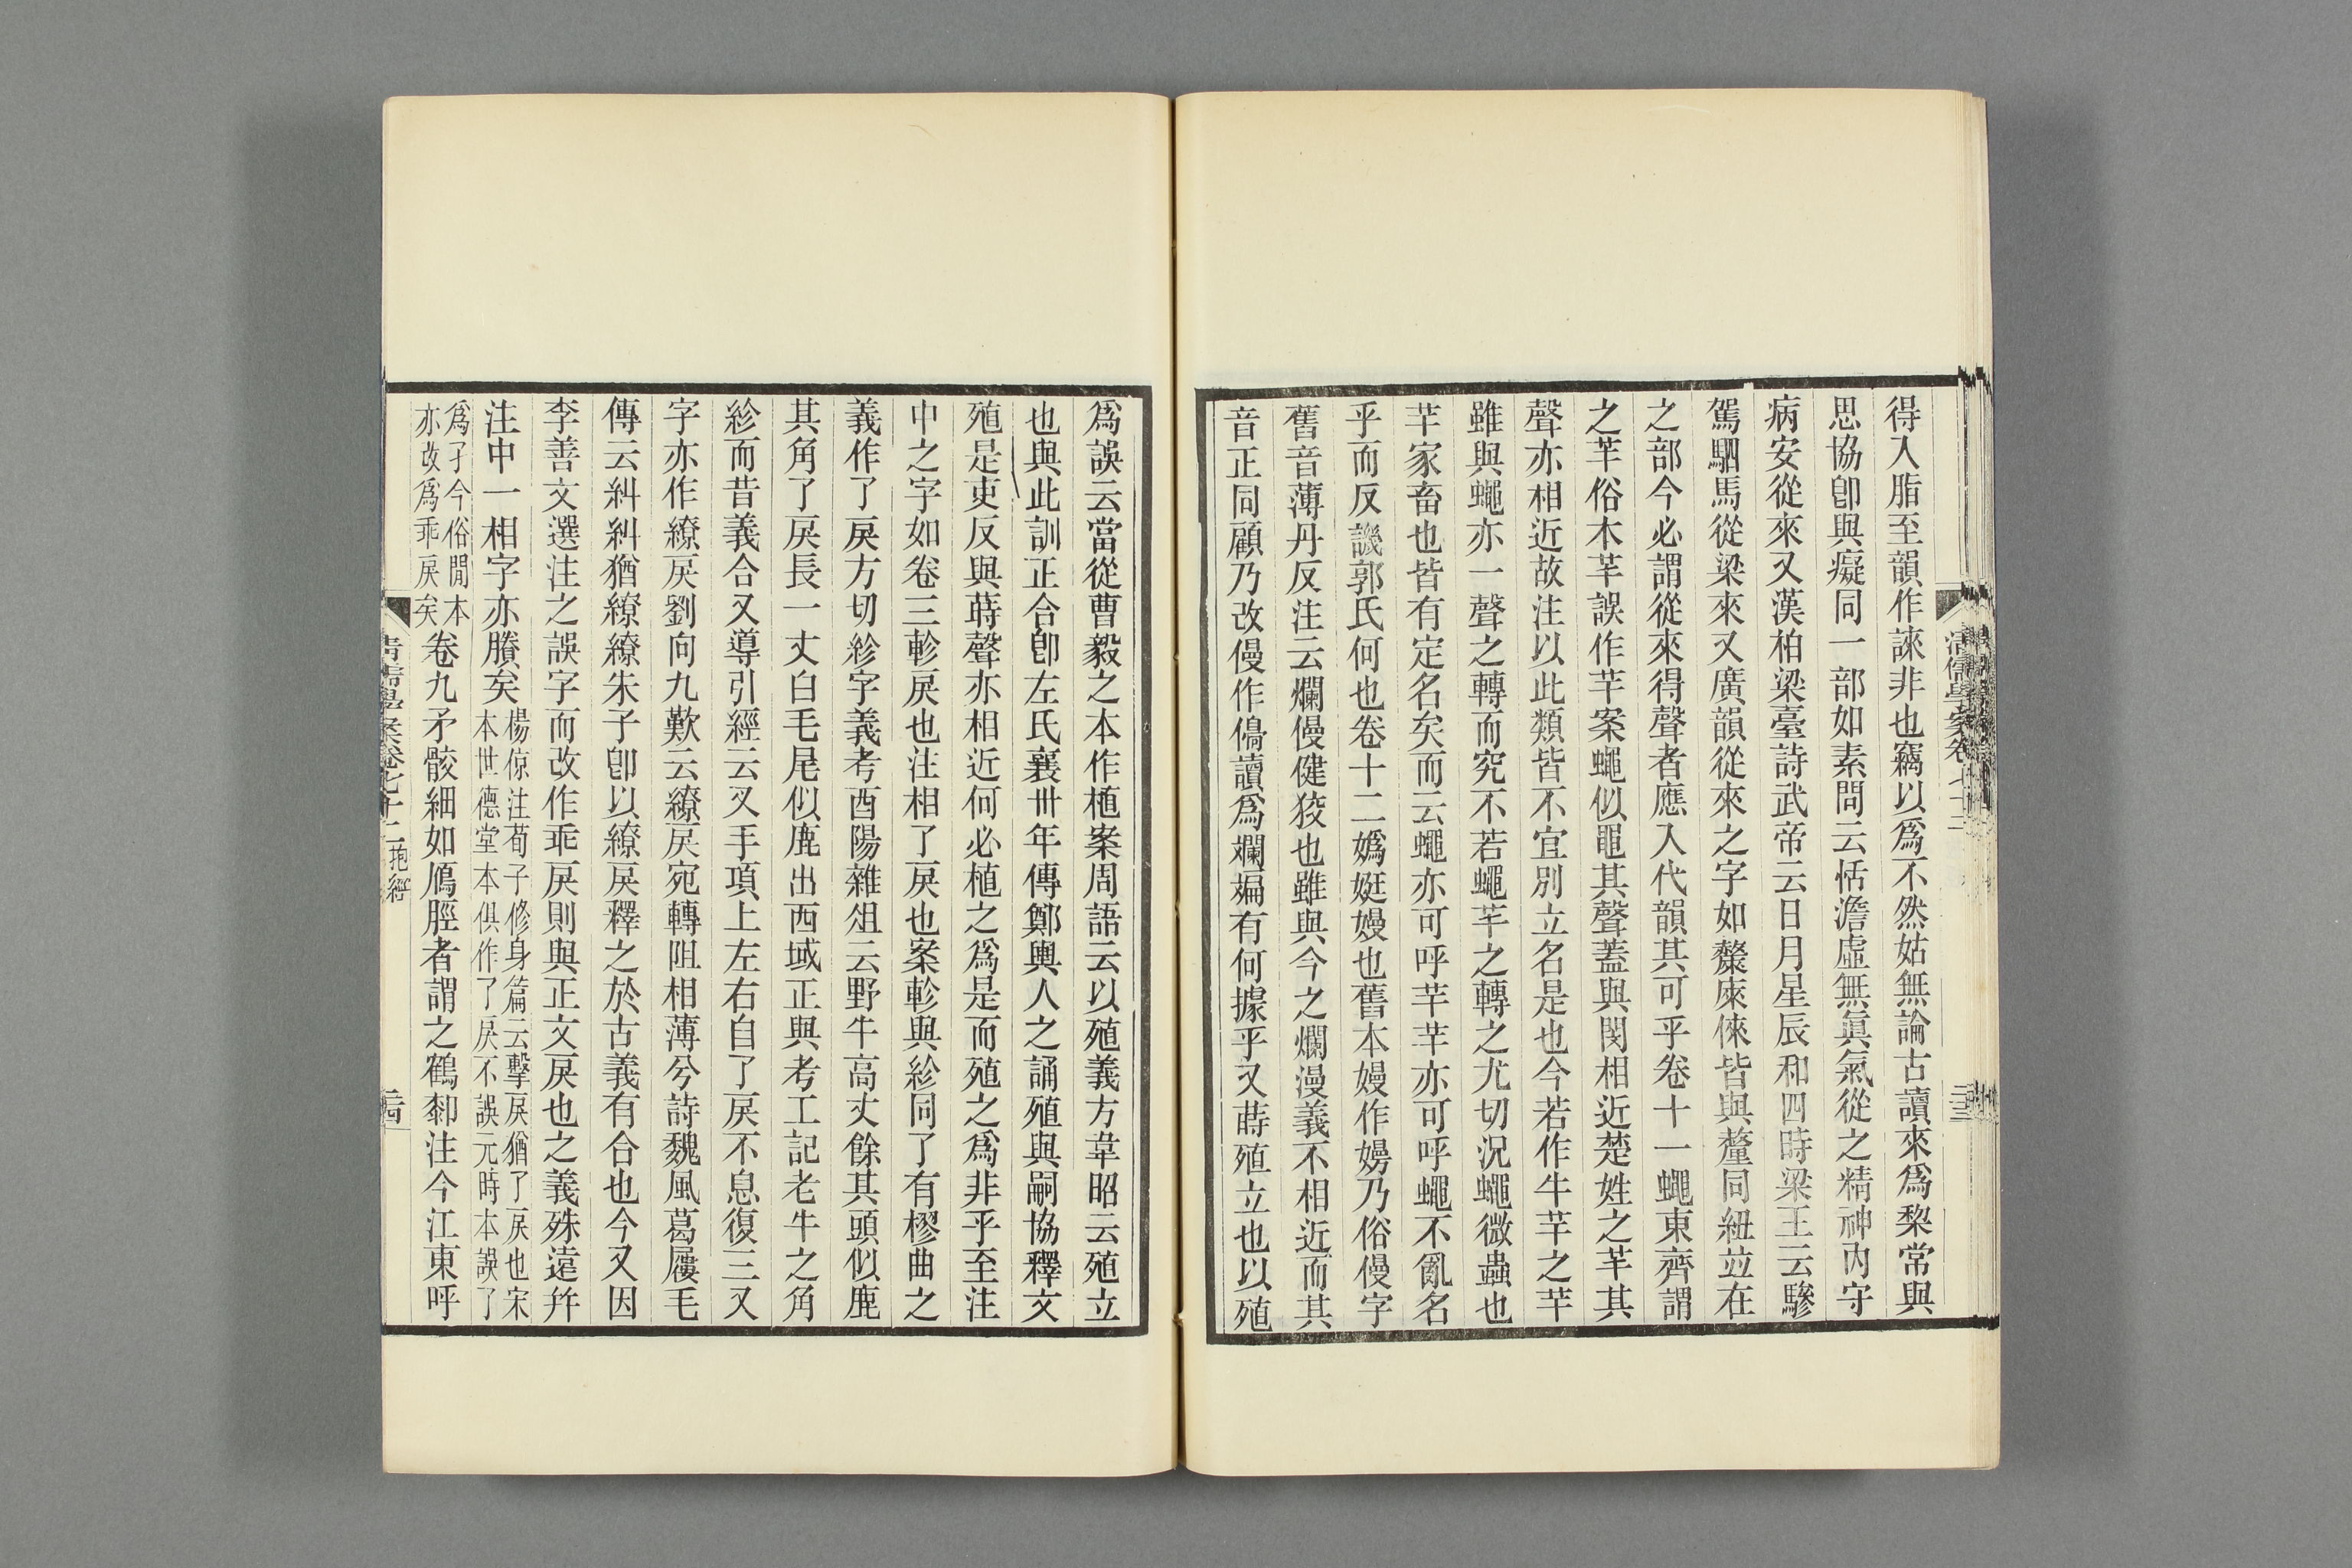 得入脂至韻作誺非也竊以爲不然姑無論古讀來爲黎常與
思協卽與癡同一部如素問云恬澹虛無眞氣從之精神內守
病安從來又漢柏梁臺詩武帝云日月星辰和四時梁王云驂
駕駟馬從梁來又廣韻從來之字如斄庲倈皆與釐同紐竝在
之部今必謂從來得聲者應入代韻其可乎卷十一蠅東齊謂
之羋俗本羋誤作芊案蠅似黽其聲蓋與閔相近楚姓之羋其
聲亦相近故注以此類皆不宜別立名是也今若作牛芊之芊
雖與蠅亦一聲之轉而究不若蠅羋之轉之尤切況蠅微蟲也
芊家畜也皆有定名矣而云蠅亦可呼芊芊亦可呼蠅不亂名
乎而反譏郭氏何也卷十二嬀娗嫚也舊本嫚作嫚乃俗僈字
舊音薄丹反注云爛僈健狡也雖與今之爛漫義不相近而其
音正同顧乃改僈作㒑讀爲斕斒有何據乎又蒔殖立也以殖
爲誤云當從曹毅之本作植案周語云以殖義方韋昭云殖立
也與此訓正合卽左氏襄卅年傳鄭輿人之誦殖與嗣協釋文
殖是吏反與蒔聲亦相近何必植之爲是而殖之爲非乎至注
中之字如卷三軫戾也注相了戾也案軫與紾同了有樛曲之
義作了戾方切紾字義考酉陽雜俎云野牛高丈餘其頭似鹿
其角了戾長一丈白毛尾似鹿出西域正與考工記老牛之角
紾而昔義合又導引經云叉手項上左右自了戾不息復三又
字亦作繚戾劉向九歎云繚戾宛轉阻相薄兮詩魏風葛屨毛
傳云糾糾猶繚繚朱子卽以繚戾釋之於古義有合也今又因
李善文選注之誤字而改作乖戾則與正文戾也之義殊遠幷
注中一相字亦賸矣楊倞注荀子修身篇云擊戾猶了戾也宋
本世德堂本俱作了戾不誤元時本誤了
爲孑今俗閒本
亦改爲乖戾矣卷九矛骹細如鴈脛者謂之鶴䣛注今江東呼